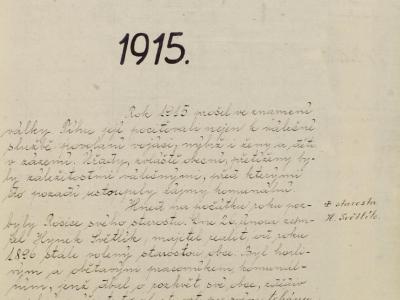 1915.
Rok 1915 prošel ve znamení
války. Tíhu její pociťovali nejen k válečné
službě povolaní vojáci, nýbrž i ženy a děti
v zázemí. Úřady, zvláště obecní, přetíženy by-
ly záležitostmi válečnými, před kterými
do pozadí ustoupily zájmy komunální.
Hned na počátku roku poz-
byly Rosice svého starostu. Dne 20. února zem-
řel Hynek Světlík, majitel realit, od roku
1896 stále volený starostou obce. Byl horli-
vým a obětavým pracovníkem komunál-
ním, jenž dbal o rozkvět své obce,
† starosta
H. Světlík.